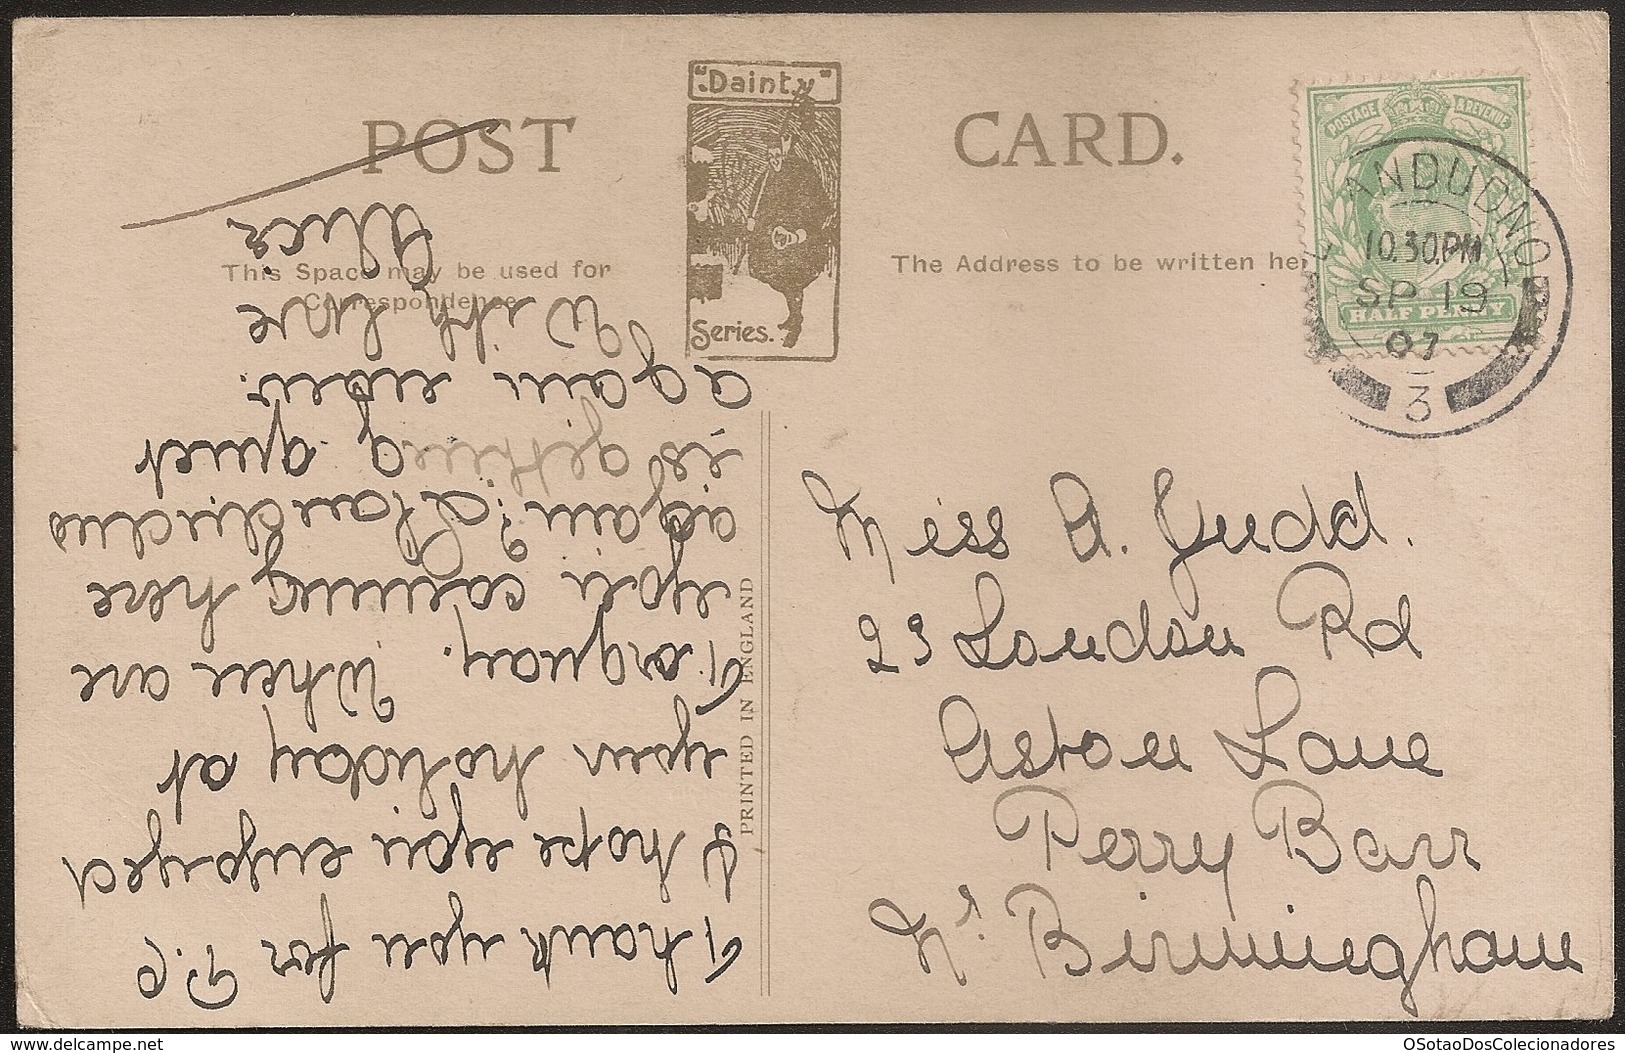 "Dainty"
Series.
POST CARD.
This Space may be used for
Correspondence
The Address to be written he
POSTAGE & REVENUE
HALF PENNY
LLANDUDNO
10.30PM
SP 19
07
3
Thank you for P.C
I hope you enjoyed
your holiday at
Torquay. When are
you coming here
again? Llandudno
is getting quiet
again now.
With love
Alice
PRINTED IN ENGLAND
Miss A. Judd.
23 London Rd
Aston Lane
Perry Barr
Nr. Birmingham
www.delcampe.net
OSotaoDosColecionadores